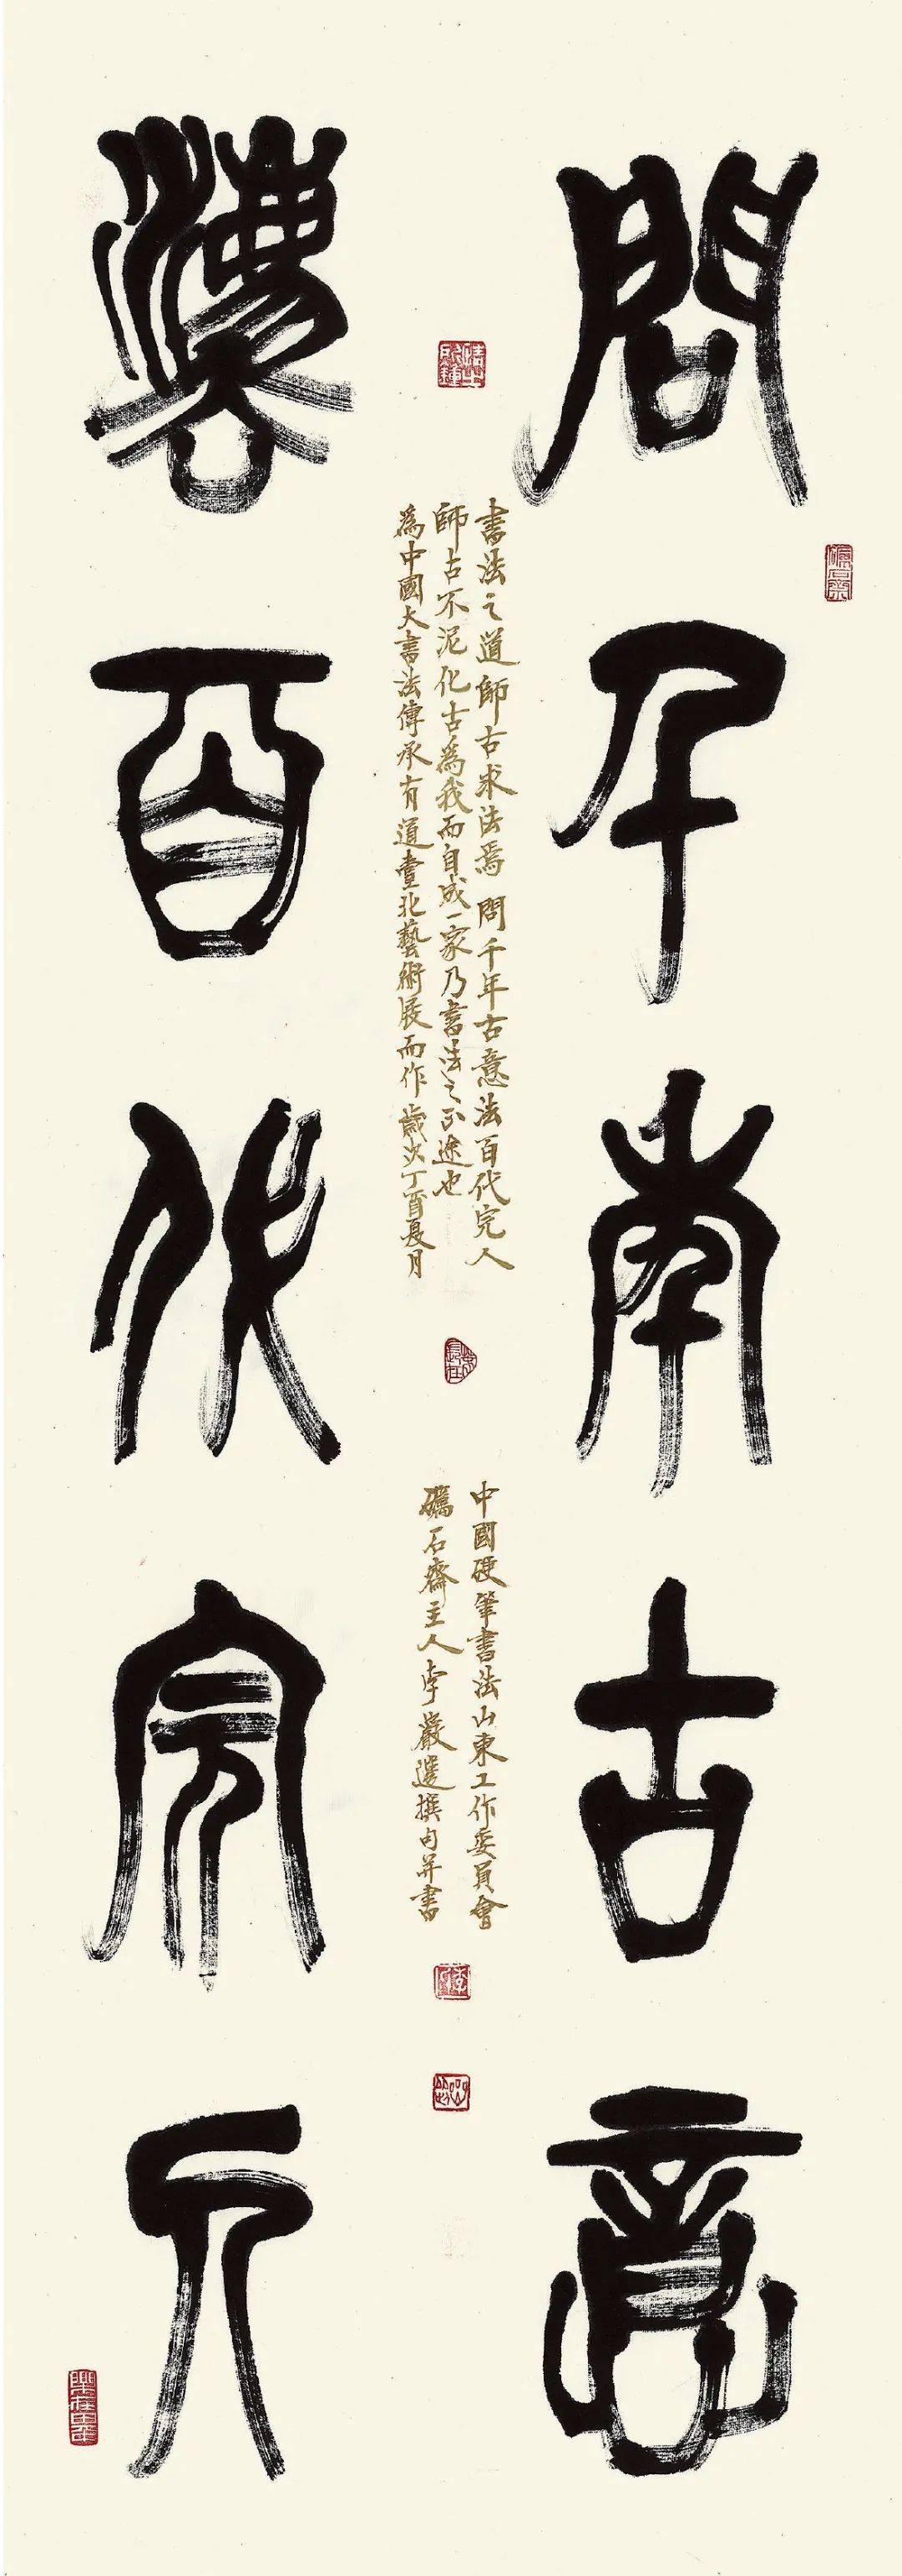 問千年古意
灋百代完人
書法之道師古求法焉 問千年古意法百代完人
師古不泥化古為我而自成一家乃書法之正途也
為中國大書法傳承有道臺北藝術展而作 歲次丁酉夏月
中國硬筆書法山東工作委員會
礪石齋主人李嚴選撰句並書